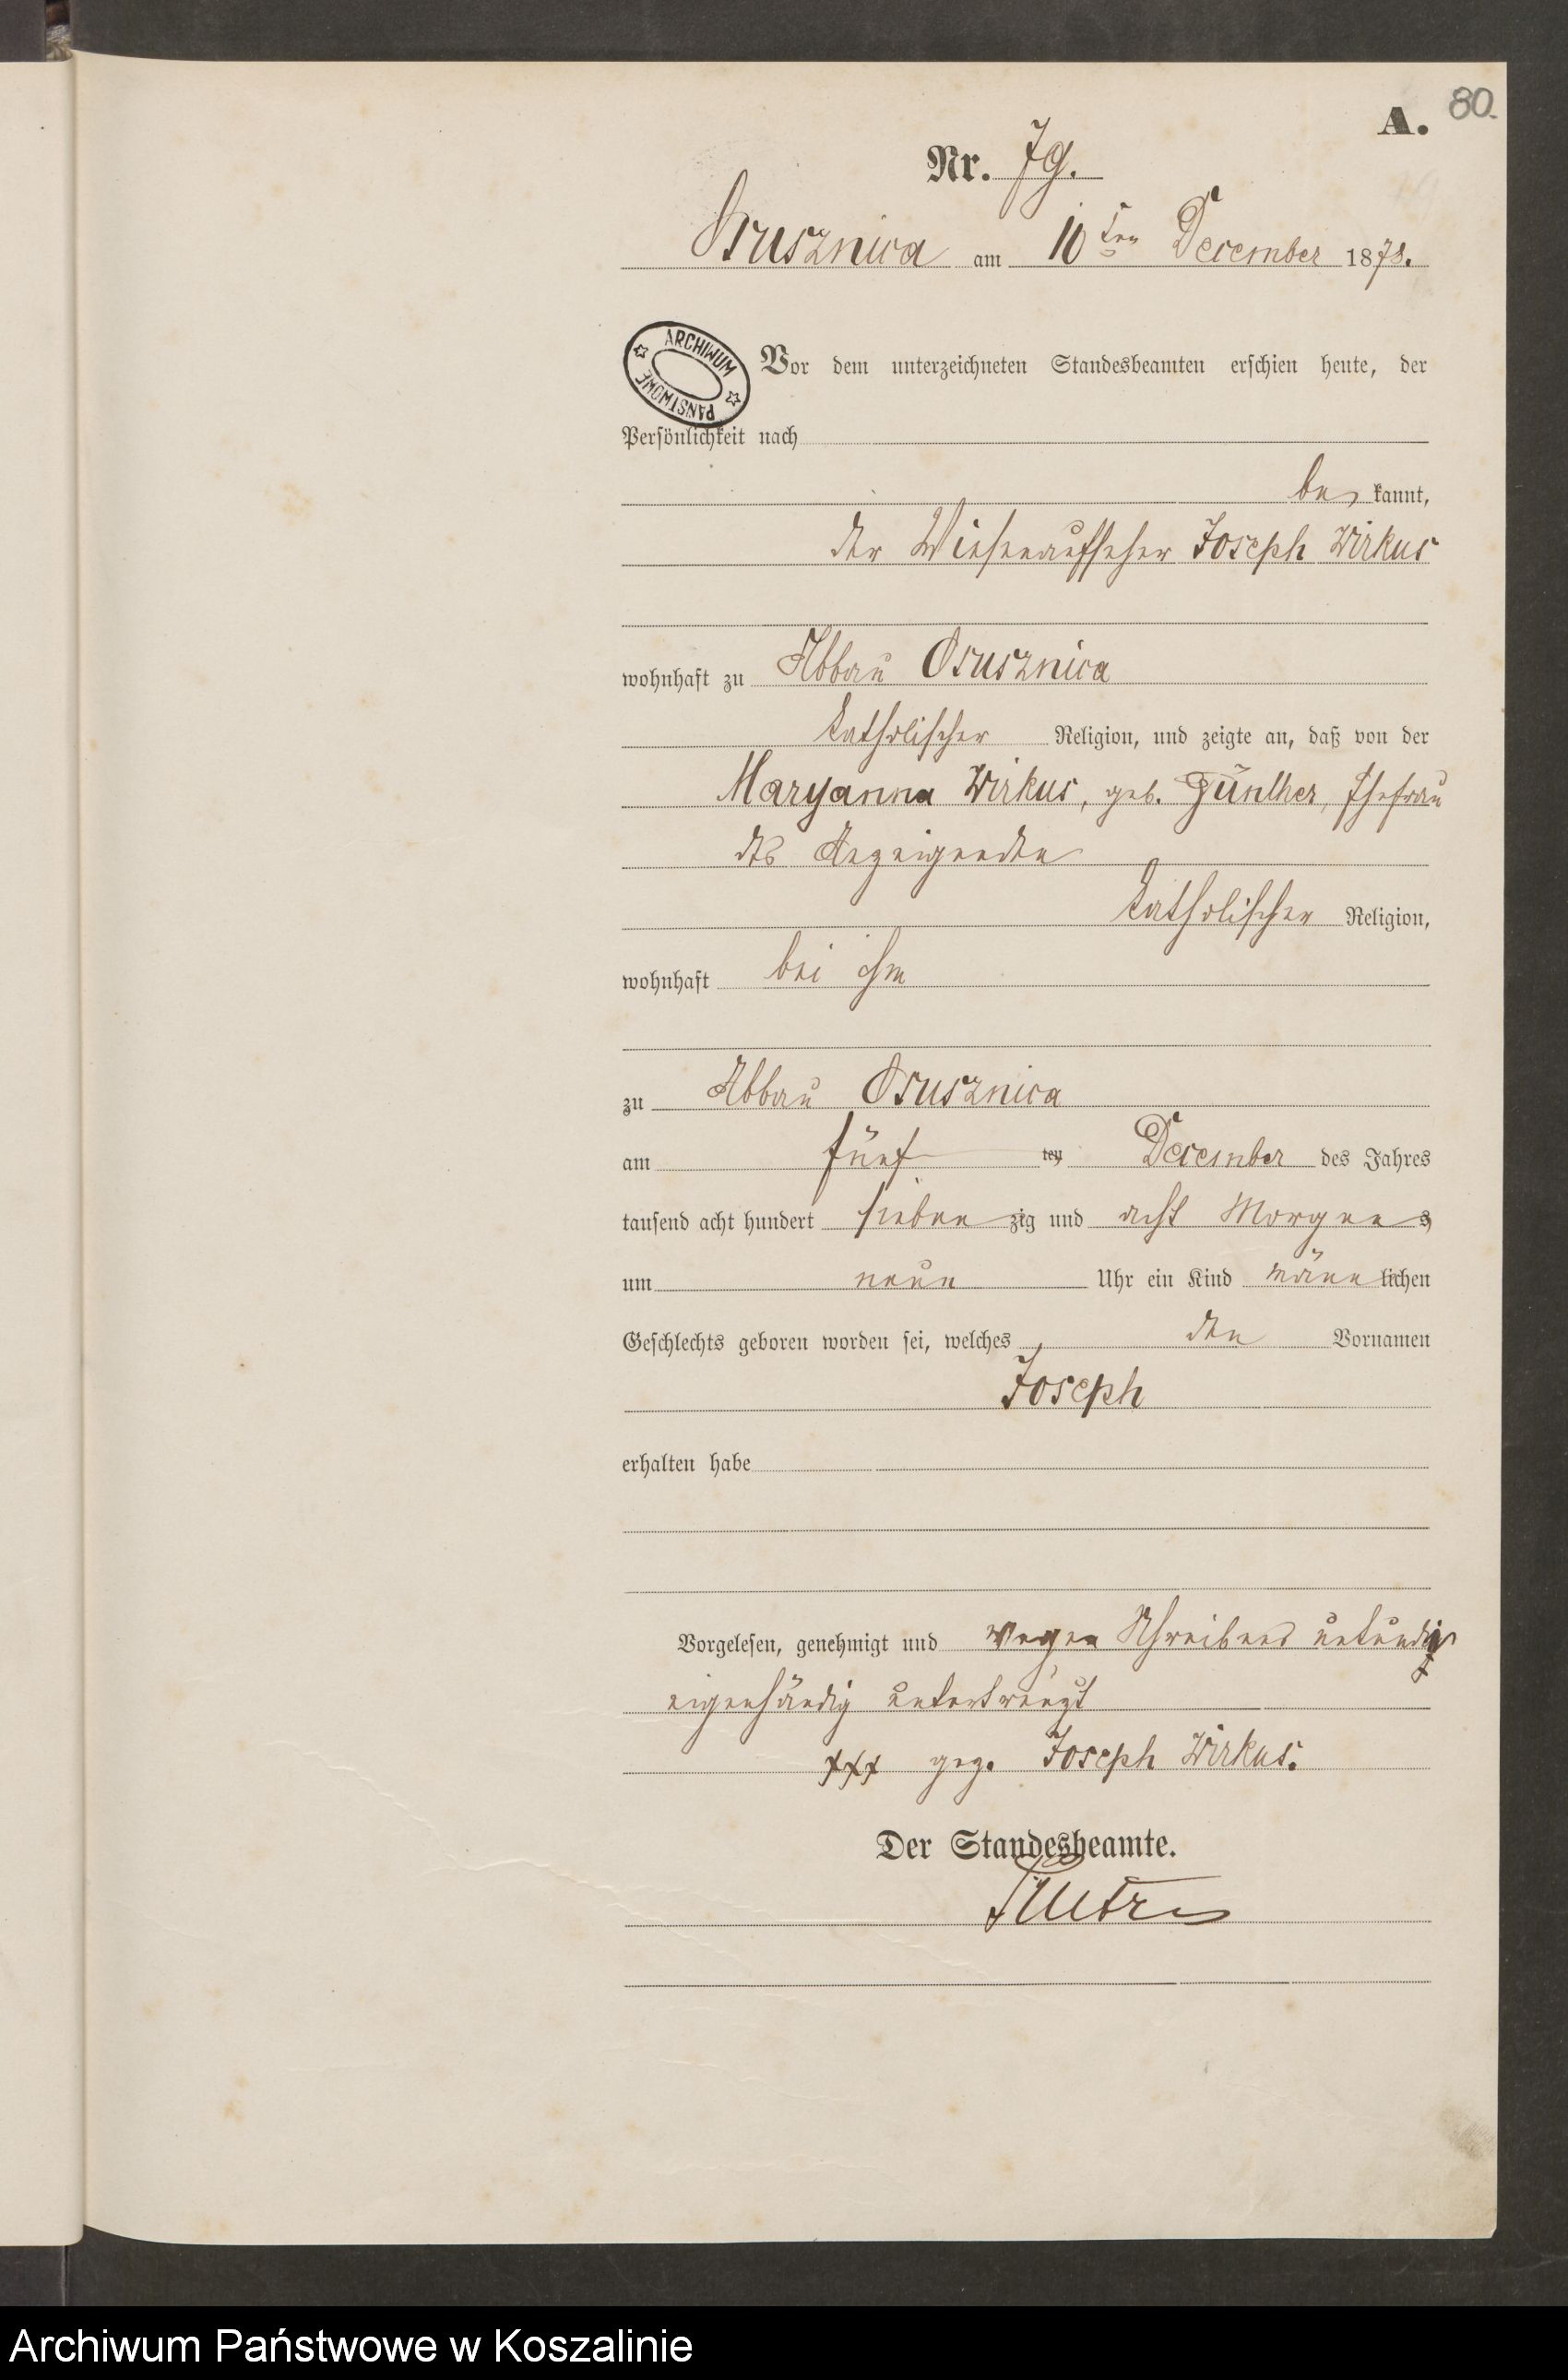 80.
A.
Nr. 79.
Osusznica am 10ten December 1878.
ARCHIWUM PANSTWOWE
Vor dem unterzeichneten Standesbeamten erschien heute, der
Persönlichkeit nach
be kannt,
der Wiesenaufseher Joseph Wirkus
wohnhaft zu Abbau Osusznica
katholischer Religion, und zeigte an, daß von der
Maryanna Wirkus, geb. Günther, Ehefrau
des Anzeigenden
katholischer Religion,
wohnhaft bei ihm
zu Abbau Osusznica
am fünf ten December des Jahres
tausend acht hundert sieben zig und acht Morgens
um neun Uhr ein Kind männ lichen
Geschlechts geboren worden sei, welches den Vornamen
Joseph
erhalten habe
Vorgelesen, genehmigt und wegen Schreibens unkundig
eigenhändig unterkreuzt
xxx gez. Joseph Wirkus.
Der Standesbeamte.
Archiwum Państwowe w Koszalinie